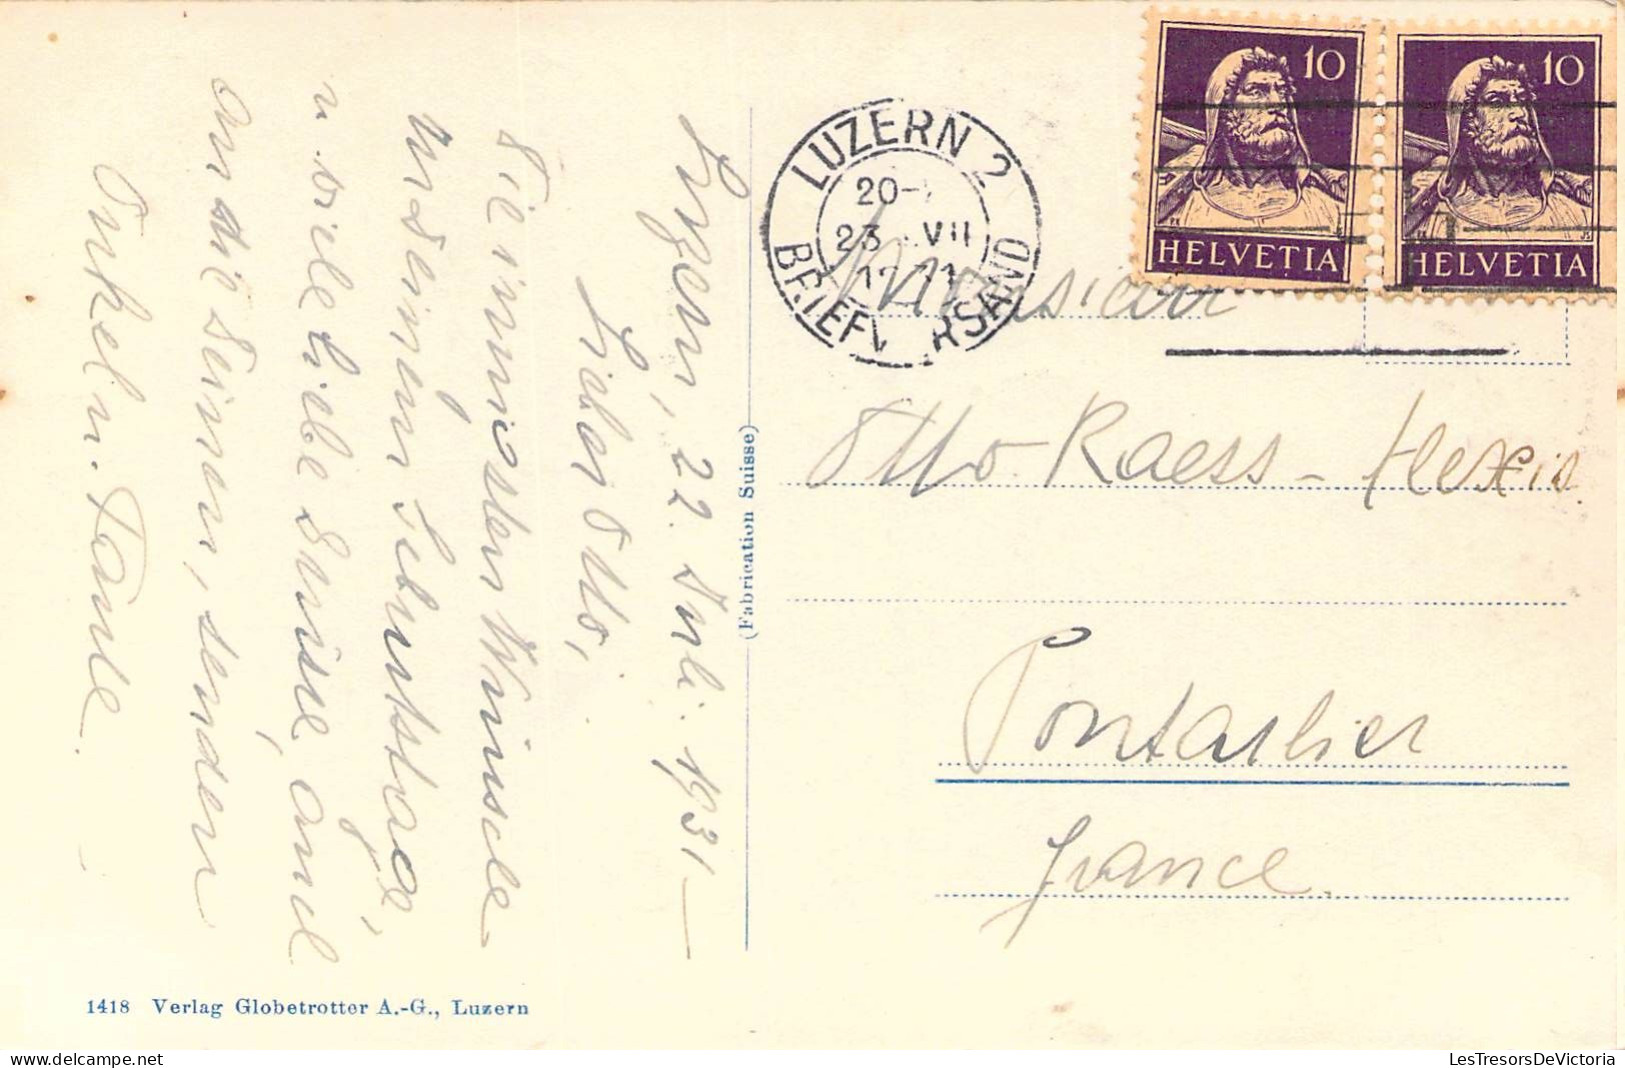 Luzern, 22. Juli. 1931 —
Lieber Otto,
Die innigsten Wünsche
zu deinem Geburtstage,
u. viele liebe Grüsse, auch
an die deinen, senden
Onkel u. Tante.
1418 Verlag Globetrotter A.-G., Luzern
(Fabrication Suisse)
LUZERN 2
20-
23. VII
BRIEFVERSAND
10 HELVETIA
10 HELVETIA
Monsieur
Otto Raess-
Pontarlier
France.
LesTresorsDeVictoria